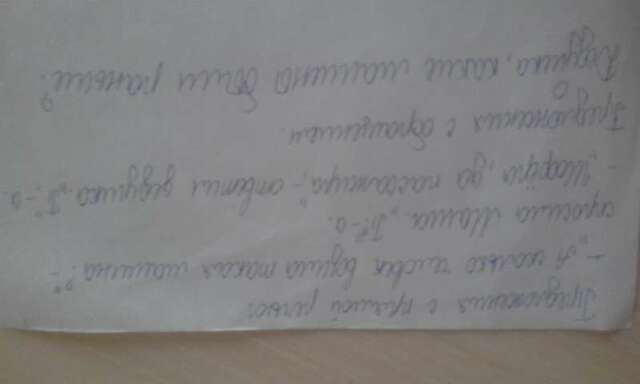 Предложения с прямой речью:
- „А сколько человек возила такая машина?" -
спросила Маша. „П?" - а.
- „Шофёра да пассажира", - ответил дедушка. „П", - а.
Предложения с обращением.
Дедушка, какие машины были раньше?